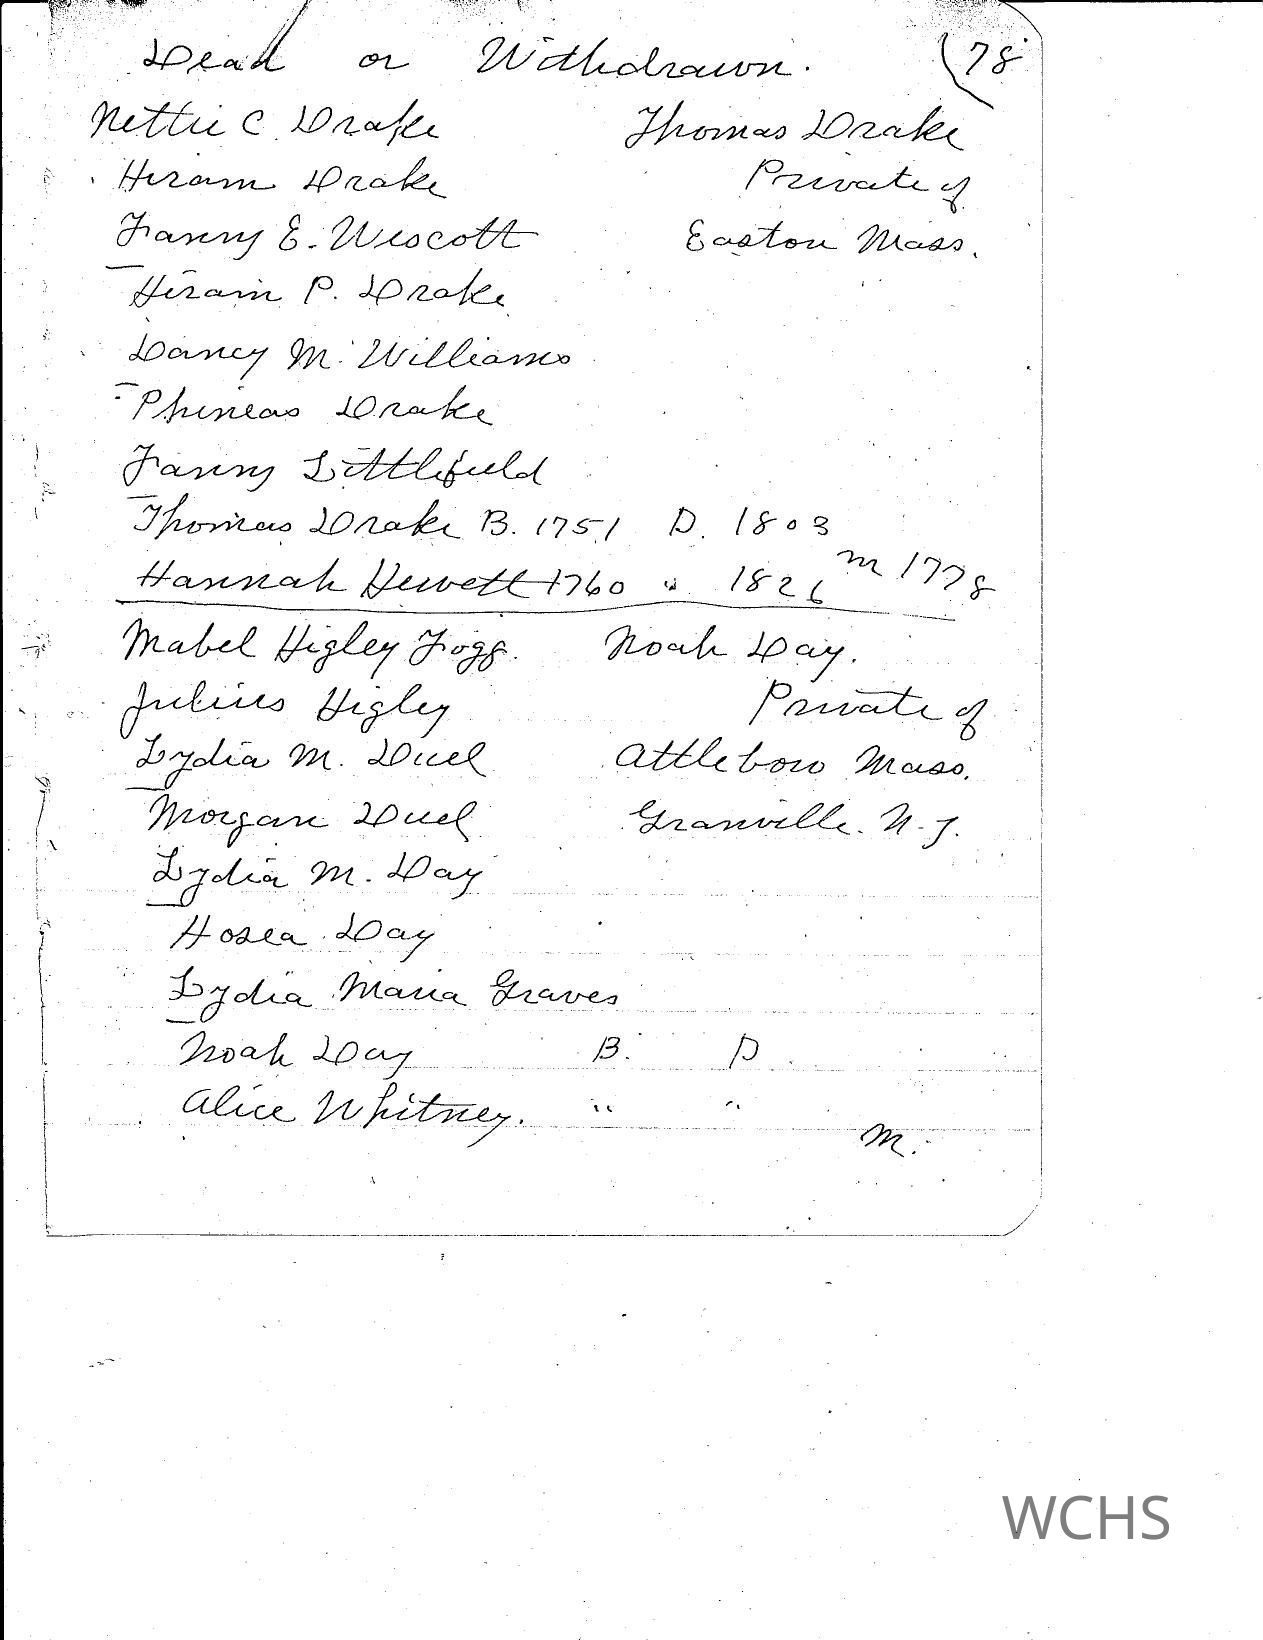 Dead or Withdrawn. (78
Nettie C. Drake Thomas Drake
Hiram Drake Private of
Fanny E. Wescott Easton Mass.
Hiram P. Drake
Dancy M. Williams
Phineas Drake
Fanny Littlefield
Thomas Drake B. 1751 D. 1803
Hannah Hewett 1760 " 1826 m 1778
Mabel Higley Fogg. Noah Day.
Julius Higley Private of
Lydia M. Duel Attleboro Mass.
Morgan Duel Granville. N.J.
Lydia M. Day
Hosea Day
Lydia Maria Graves
Noah Day B. D.
Alice Whitney. " "
M.
WCHS